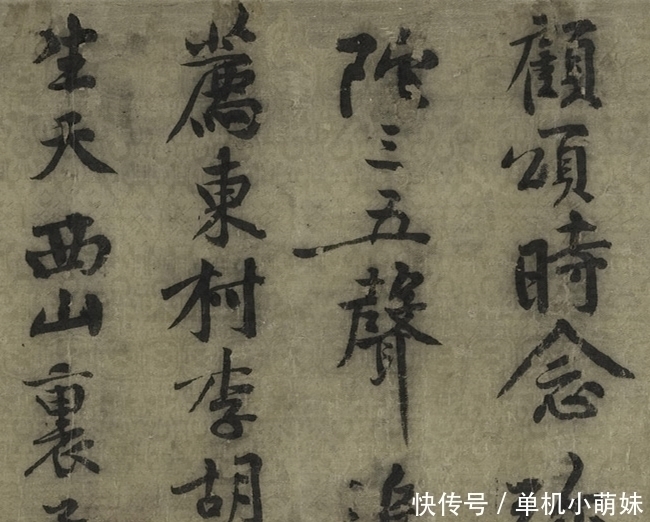 顧頌時念
陀三五聲
薦東村李胡
生天西山裏
快传号 / 单机小萌妹